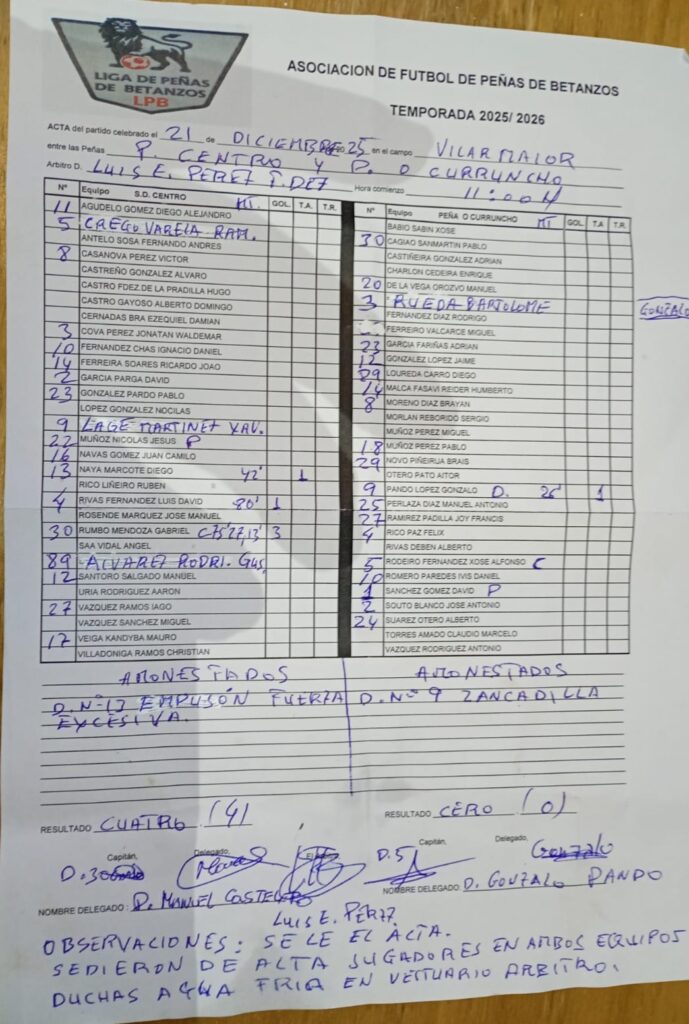 LIGA DE PEÑAS
DE BETANZOS
LPB
ASOCIACION DE FUTBOL DE PEÑAS DE BETANZOS
TEMPORADA 2025/ 2026
ACTA del partido celebrado el 21 de DICIEMBRE 25 en el campo VILARMAIOR
entre las Peñas P. CENTRO Y P. O CURRUNCHO
Arbitro D. LUIS E. PEREZ F.DEZ Hora comienzo 11:00H
Nº Equipo S.D. CENTRO GOL. T.A. T.R.
11 AGUDELO GOMEZ DIEGO ALEJANDRO
5 CREGO VARELA RAM.
ANTELO SOSA FERNANDO ANDRES
8 CASANOVA PEREZ VICTOR
CASTREÑO GONZALEZ ALVARO
CASTRO FDEZ DE LA PRADILLA HUGO
CASTRO GAYOSO ALBERTO DOMINGO
CERNADAS BRA EZEQUIEL DAMIAN
3 COVA PEREZ JONATAN WALDEMAR
10 FERNANDEZ CHAS IGNACIO DANIEL
14 FERREIRA SOARES RICARDO JOAO
2 GARCIA PARGA DAVID
23 GONZALEZ PARDO PABLO
LOPEZ GONZALEZ NOCILAS
9 LAGE MARTINEZ XAV.
22 MUÑOZ NICOLAS JESUS P
16 NAVAS GOMEZ JUAN CAMILO
13 NAYA MARCOTE DIEGO 42' 1
RICO LIÑEIRO RUBEN
4 RIVAS FERNANDEZ LUIS DAVID 80' 1
ROSENDE MARQUEZ JOSE MANUEL
30 RUMBO MENDOZA GABRIEL C 75' 27, 13' 3
SAA VIDAL ANGEL
89 ALVAREZ RODRI. GUS.
12 SANTORO SALGADO MANUEL
URIA RODRIGUEZ AARON
27 VAZQUEZ RAMOS IAGO
VAZQUEZ SANCHEZ MIGUEL
17 VEIGA KANDYBA MAURO
VILLADONIGA RAMOS CHRISTIAN
Nº Equipo PEÑA O CURRUNCHO GOL. T.A T.R.
BABIO SABIN XOSE
30 CAGIAO SANMARTIN PABLO
CASTIÑEIRA GONZALEZ ADRIAN
CHARLON CEDEIRA ENRIQUE
20 DE LA VEGA OROZVO MANUEL
3 RUEDA BARTOLOME GONZALO
FERNANDEZ DIAZ RODRIGO
FERREIRO VALCARCE MIGUEL
23 GARCIA FARIÑAS ADRIAN
12 GONZALEZ LOPEZ JAIME
89 LOUREDA CARRO DIEGO
14 MALCA FASAVI REIDER HUMBERTO
8 MORENO DIAZ BRAYAN
MORLAN REBORIDO SERGIO
MUÑOZ PEREZ MIGUEL
18 MUÑOZ PEREZ PABLO
29 NOVO PIÑEIRUA BRAIS
OTERO PATO AITOR
9 PANDO LOPEZ GONZALO D. 26' 1
25 PERLAZA DIAZ MANUEL ANTONIO
27 RAMIREZ PADILLA JOY FRANCIS
4 RICO PAZ FELIX
RIVAS DEBEN ALBERTO
5 RODEIRO FERNANDEZ XOSE ALFONSO C
10 ROMERO PAREDES IVIS DANIEL
1 SANCHEZ GOMEZ DAVID P
2 SOUTO BLANCO JOSE ANTONIO
24 SUAREZ OTERO ALBERTO
TORRES AMADO CLAUDIO MARCELO
VAZQUEZ RODRIGUEZ ANTONIO
AMONESTADOS
D. Nº 13 EMPUSÓN FUERZA
EXCESIVA.
AMONESTADOS
D. Nº 9 ZANCADILLA
RESULTADO CUATRO (4)
RESULTADO CERO (0)
Capitán, Delegado, Capitán, Delegado,
D.30 D.5 Gonzalo
NOMBRE DELEGADO: D. MANUEL
NOMBRE DELEGADO: D. GONZALO PANDO
LUIS E. PÉREZ
OBSERVACIONES: SE LE EL ALTA.
SEDIERON DE ALTA JUGADORES EN AMBOS EQUIPOS
DUCHAS AGUA FRIA EN VESTUARIO ARBITRO.